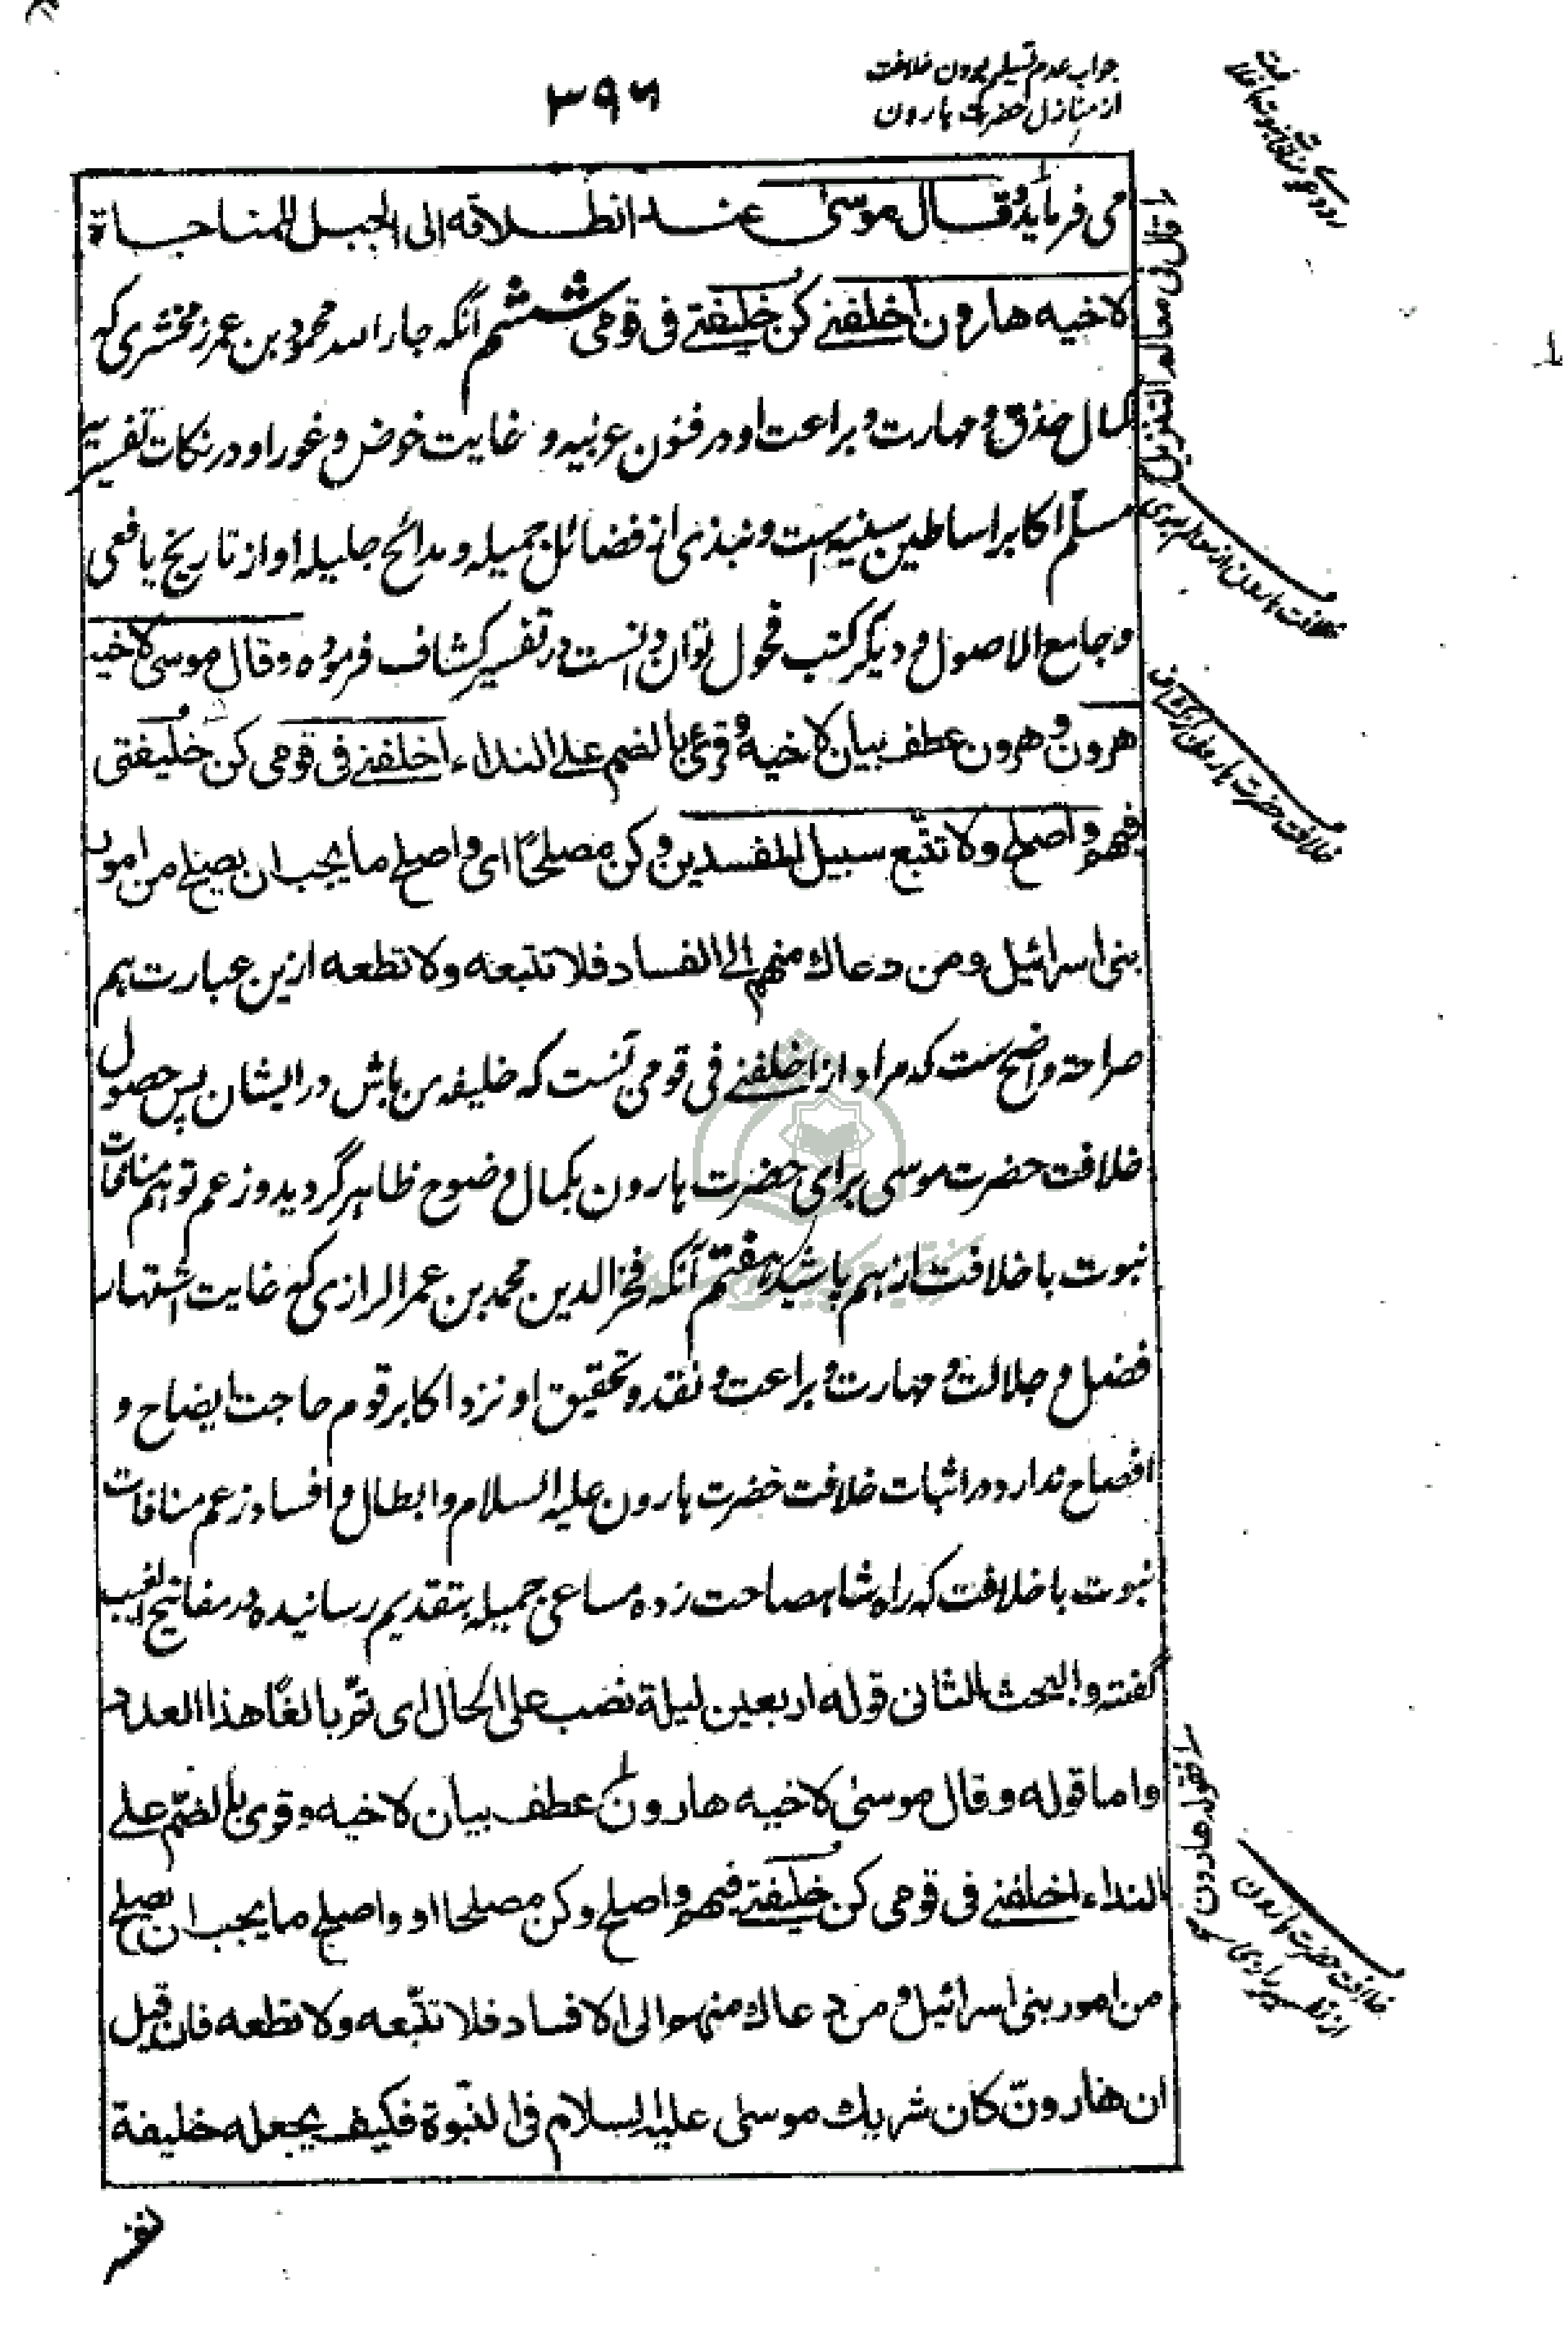 جواب عدم تسلیم بودن خلافت
از منازل حضرت هارون
۳۹۶
می فرماید وقال موسی عند انطلاقه الی الجبل للمناجاة
لاخیه هارون اخلفنے کن خلیفتے فی قومی ششم آنکه جار الله محمود بن عمر زمخشری که
کمال حذق و مهارت و براعت او در فنون عربیه و غایت خوض و غور او در نکات تفسیر
مسلم اکابر اساطین سنیه است و نبذی از فضائل جمیله و مدائح جلیله او از تاریخ یافعی
و جامع الاصول و دیگر کتب فحول توان دانست در تفسیر کشاف فرموده وقال موسی لاخیه
هرون و هرون عطف بیان لاخیه وقرئ بالضم علے النداء اخلفنے فی قومی کن خلیفتی
فیهم واصلح ولا تتبع سبیل المفسدین وکن مصلحًا ای واصلح ما یجب ان یصلح من امور
بنی اسرائیل ومن دعاك منهم الی الفساد فلا تتبعه ولا تطعه ازین عبارت هم
صراحة واضح ست که مراد از اخلفنے فی قومی آنست که خلیفه من باش در ایشان پس حصول
خلافت حضرت موسی برای حضرت هارون بکمال وضوح ظاهر گردید و زعم توهم منافات
نبوت با خلافت از هم پاشید هفتم آنکه فخر الدین محمد بن عمر الرازی که غایت اشتهار
فضل و جلالت و مهارت و براعت و نقد و تحقیق او نزد اکابر قوم حاجت ایضاح و
افصاح ندارد در اثبات خلافت حضرت هارون علیه السلام و ابطال و افساد زعم منافات
نبوت با خلافت که راه شاهصاحت زده مساعی جمیله بتقدیم رسانیده در مفاتیح الغیب
گفته والبحث الثانی قوله اربعین لیلة نصب علی الحال ای تمّ بالغًا هذا العدد
واما قوله وقال موسیٰ لاخیه هارون عطف بیان لاخیه وقرئ بالضمّ علے
النداء اخلفنے فی قومی کن خلیفتے فیهم واصلح وکن مصلحا او واصلح ما یجب ان یصلح
من امور بنی اسرائیل ومن دعاك منهم الی الافساد فلا تتّبعه ولا تطعه فان قیل
ان هارون کان شریك موسی علیه السلام فی النبوّة فکیف یجعله خلیفة
لنفسه
قال فی معالم التنزیل
خلافت هارون از معالم بغوی
خلافت حضرت هارون از کشاف
خلافت حضرت هارون
از تفسیر رازی